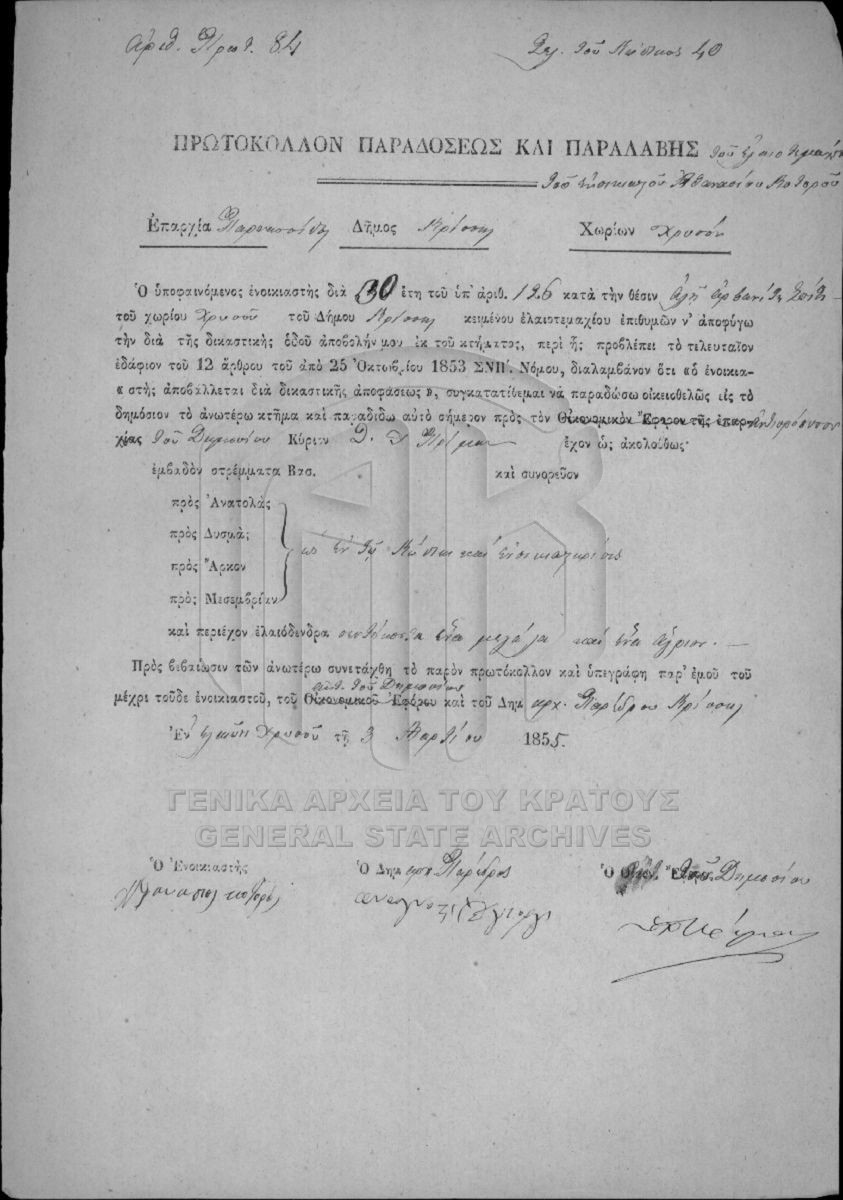 Αριθ. Πρωτ. 84
Σελ. τοῦ 40
ΠΡΩΤΟΚΟΛΛΟΝ ΠΑΡΑΔΟΣΕΩΣ ΚΑΙ ΠΑΡΑΛΑΒΗΣ τοῦ
τοῦ Ἀθανασίου
Ἐπαρχία Παρνασσίδος Δῆμος Κρίσσης Χωρίον Χρυσόν
Ὁ ὑποφαινόμενος ἐνοικιαστὴς διὰ 30 ἔτη τοῦ ὑπ' ἀριθ. 126 κατὰ τὴν θέσιν
τοῦ χωρίου Χρυσοῦ τοῦ Δήμου Κρίσσης κειμένου ἐλαιοτεμαχίου ἐπιθυμῶν ν' ἀποφύγω
τὴν διὰ τῆς δικαστικῆς ὁδοῦ ἀποβολήν μου ἐκ τοῦ κτήματος, περὶ ἧς προβλέπει τὸ τελευταῖον
ἐδάφιον τοῦ 12 ἄρθρου τοῦ ἀπὸ 25 Ὀκτωβρίου 1853 ΣΝΠ'. Νόμου, διαλαμβάνον ὅτι «ὁ ἐνοικια-
« στὴς ἀποβάλλεται διὰ δικαστικῆς ἀποφάσεως », συγκατατίθεμαι νὰ παραδώσω οἰκειοθελῶς εἰς τὸ
δημόσιον τὸ ἀνωτέρω κτῆμα καὶ παραδίδω αὐτὸ σήμερον πρὸς τὸν Οἰκονομικὸν Ἔφορον τῆς ἐπαρ-
χίας τοῦ Δημοσίου Κύριον ἔχον ὡς ἀκολούθως·
ἐμβαδὸν στρέμματα Βασ. καὶ συνορεῦον
πρὸς Ἀνατολὰς
πρὸς Δυσμὰς
πρὸς Ἄρκτον
πρὸς Μεσημβρίαν
ὡς ἐν τῷ
καὶ περιέχον ἐλαιόδενδρα ἕνα μεγάλα καὶ ἕνα ἄγριον. —
Πρὸς βεβαίωσιν τῶν ἀνωτέρω συνετάχθη τὸ παρὸν πρωτόκολλον καὶ ὑπεγράφη παρ' ἐμοῦ τοῦ
τοῦ Δημοσίου
μέχρι τοῦδε ἐνοικιαστοῦ, τοῦ Οἰκονομικοῦ Ἐφόρου καὶ τοῦ Δημ αρχ. Παρέδρου Κρίσσης
Ἐν Χρυσοῦ τῇ 3 Μαρτίου 1855.
ΓΕΝΙΚΑ ΑΡΧΕΙΑ ΤΟΥ ΚΡΑΤΟΥΣ
GENERAL STATE ARCHIVES
Ὁ Ἐνοικιαστὴς Ὁ Δημαρ. Πάρεδρος Ὁ τοῦ Δημοσίου